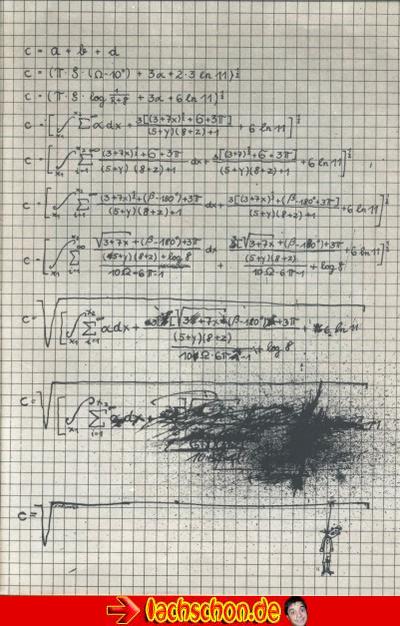 c = a + b + d
c = (π · ρ · (Ω-10°) + 3a + 2·3 ln 11)^½
c = (π · ρ · log 1/(2+8) + 3a + 6 ln 11)^½
c = [∫ Σ a dx + 3[(3+7x)^½ + 6 + 3π] / (5+y)(8+z)+1 + 6 ln 11]^½
c = [∫ Σ (3+7x)^½ + 6 + 3π / (5+y)(8+z)+1 dx + 3[(3+7)^½ + 6 + 3π] / (5+y)(8+z)+1 + 6 ln 11]^½
c = [∫ Σ (3+7x)^½ + (β-180°) + 3π / (5+y)(8+z)+1 dx + 3[(3+7x)^½ + (β-180°) + 3π] / (5+y)(8+z)+1 + 6 ln 11]^½
c = [∫ Σ √3+7x + (β-180°) + 3π / (5+y)(8+z) + log 8 / 10Ω+6π-1 dx + 3[√3+7x + (β-180°) + 3π / (5+y)(8+z) / 10Ω+6π-1 + log 8 + 6 ln 11]^½
c = √[∫ Σ a dx + [√3+7x (β-180°) + 3π / (5+y)(8+z) / 10Ω·6π-1 + log 8 + ln 11
c = √[∫ Σ dx
c = √
lachschon.de